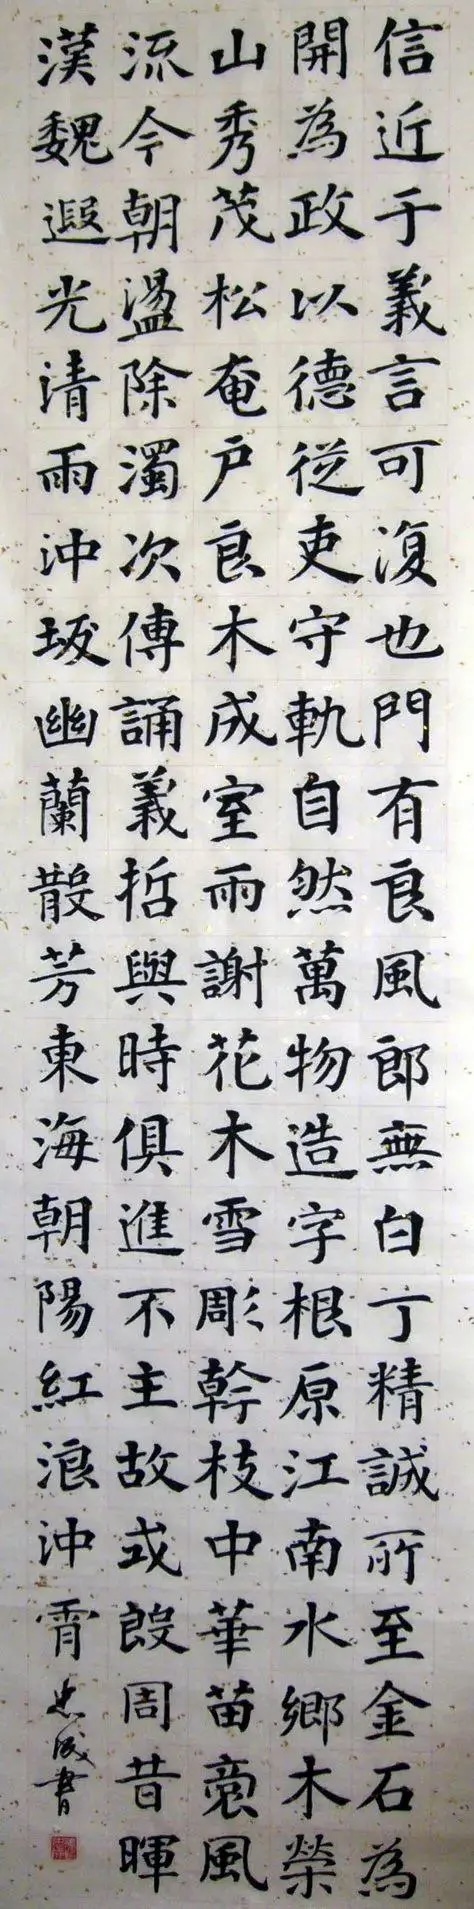 信近于義言可復也門有良風郎無白丁精誠所至金石為
開為政以德從吏守軌自然萬物造字根原江南水鄉木榮
山秀茂松奄戶良木成室雨謝花木雪彫幹枝中華苗裔風
流今朝盪除濁次傳誦義哲與時俱進不主故或殷周昔暉
漢魏遐光清雨沖坂幽蘭散芳東海朝陽紅浪沖霄
忠成書